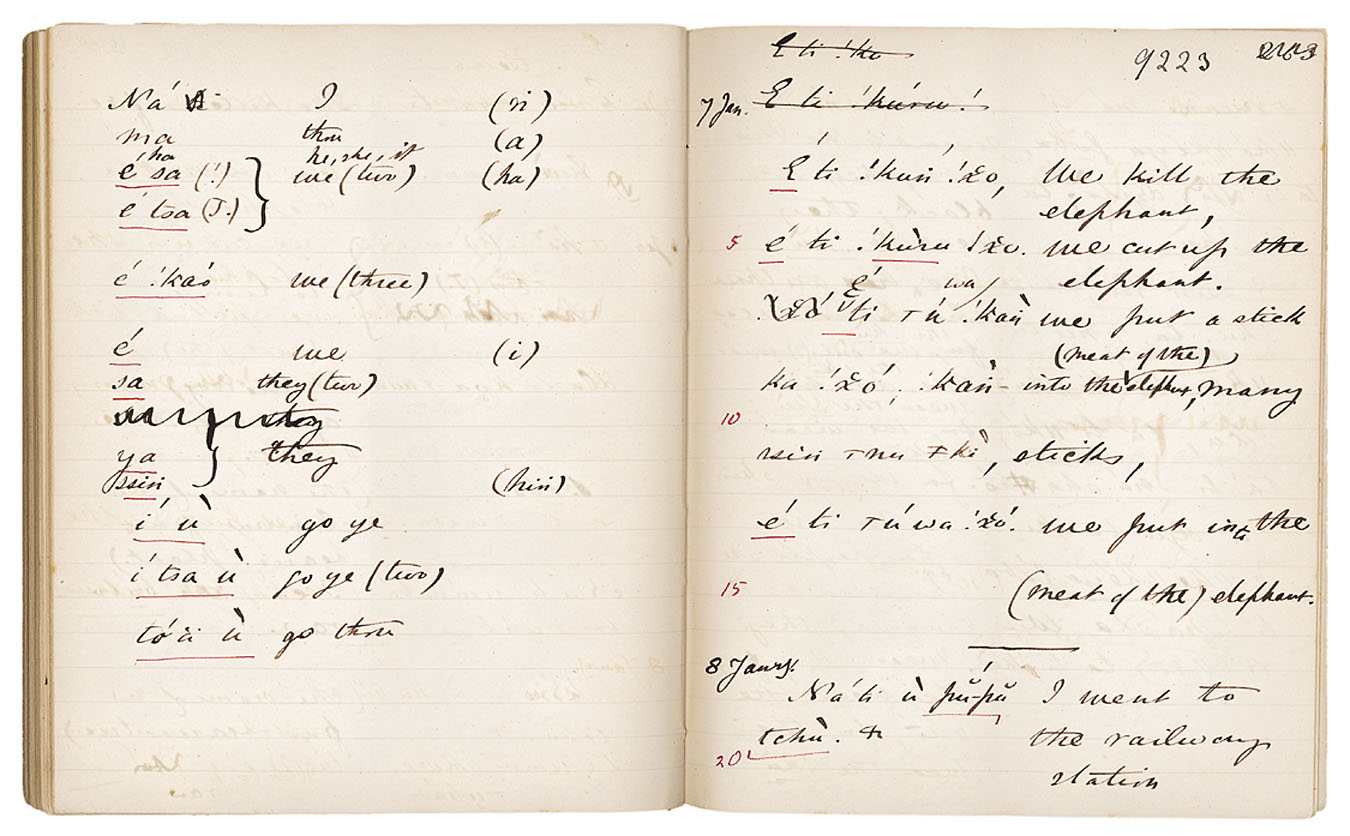 Ná I (ri)
ma thou (a)
ha he, she, it
é sa (!) we (two) (ha)
é tsa (T.)
é !kaó we (three)
é we (i)
sa they (two)
they
ya they
ssin (hiń)
í ù go ye
í tsa ù go ye (two)
ù go thou
E ti !ko 9223
7 Jan. E ti !kúru!
É ti !kuń !x̌o, We kill the
elephant,
5 é ti !kùru !x̌o. we cut up the
elephant.
é wa
ti tú !kaǹ we put a stick
(meat of the)
ka !x̌ó, !kaǹ - into the elephant, many
10
sticks,
é ti túwa !x̌ó. we put into the
15 (meat of the) elephant.
8 Jany.
Ná ti ù pŭ-pŭ I went to
tchù. the railway
20 station